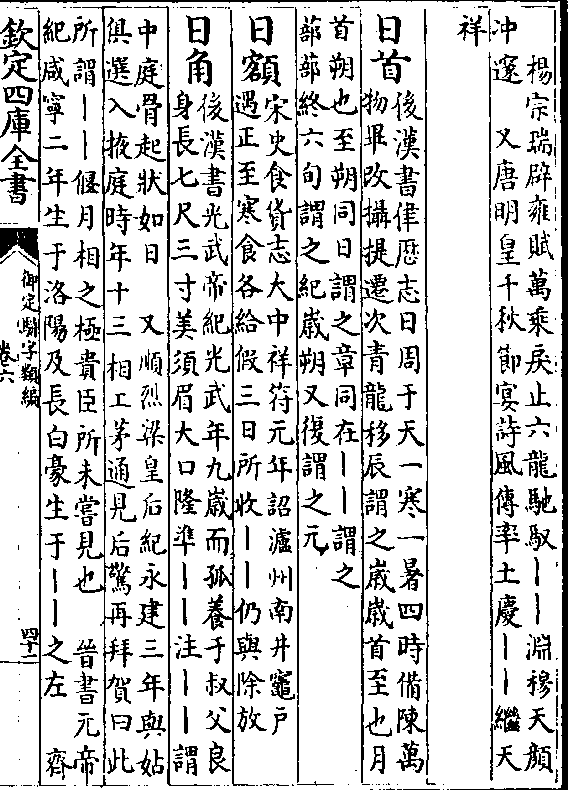 楊宗瑞辟雍賦萬乘戾止六龍馳馭丨丨淵穆天顔
冲邃　又唐明皇千秋節宴詩風傳率土慶丨丨繼天
祥
日首
後漢書律厯志日周于天一寒一暑四時備陳萬
物畢改攝提遷次青龍移辰謂之嵗嵗首至也月
首朔也至朔同日謂之章同在丨丨謂之
蔀蔀終六旬謂之紀嵗朔又復謂之元
日額
宋史食貨志大中祥符元年詔瀘州南井竈户
遇正至寒食各給假三日所收丨丨仍與除放
日角
後漢書光武帝紀光武年九嵗而孤養于叔父良
身長七尺三寸美須眉大口隆準丨丨注丨丨謂
中庭骨起狀如日　又順烈梁皇后紀永建三年與姑
俱選入掖庭時年十三相工茅通見后驚再拜賀曰此
所謂丨丨偃月相之極貴臣所未嘗見也　晉書元帝
紀咸寧二年生于洛陽及長白豪生于丨丨之左　齊
欽定四庫全書
御定駢字類編
卷六
四十二